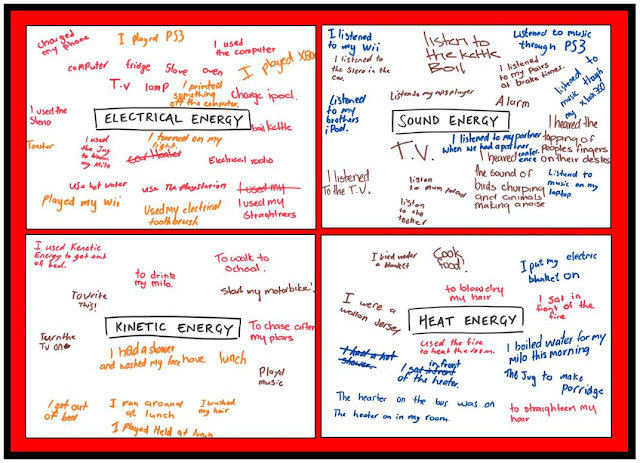 charged
my phone
I played PS3
I used
the computer
computer
fridge
Stove
oven
I played XBox
T.V
lamp
I printed
something
off the computer.
charge ipod.
I used the
Steno
ELECTRICAL ENERGY
boil kettle
Toaster
I used
the Jug
to warm
my Milo
I turned on my
light.
Car Heater
Electrical radio
Use hot water
use The playstation
I used my
Played my wii
Used my electrical
toothbrush
I used my
Straightners
I listened
to my Wii
I listened to
the Stero in the
car.
listen to
the kettle
Boil
Listened to music
through PS3
I listened
to my pears
at brake times.
listened to
music though
my xbox360
Listened
to my
brothers
iPod.
Listen to my mp3 player
Alarm
SOUND ENERGY
I heared the
tapping of
peoples fingers
on their desks
T.V.
I listened to my partner
when we had a partner
conference
I heared
the sound of
birds churping
and animals
making a noise
I listened
To the T.V.
listen
to mum read
listen
to the
techer
Listend to
music on my
laptop.
I used Kenetic
Energy to get out
of bed.
To walk to
school.
to drink
my milo.
Start my motorbike!
To Write
This!
KINETIC ENERGY
To chase after
my
Turn the
Tv on
I had a shower
and washed my face
have lunch
Played
music
I got out
of bed
I ran around
at lunch
I brushed
my hair
I played Held at lunch
I under
a blanket
Cook
food!
I put my electric
blanket on
to blowdry
my hair
I sat in
front of the
fire
I were a
wollon Jersey
HEAT ENERGY
used the fire
to heat the room.
I had a hot
shower.
I sat in front
of the heater.
I boiled water for my
milo this morning
The Jug to make
porridge
The hearter on the bus was on
The heater on in my room.
to straighteen my
hair